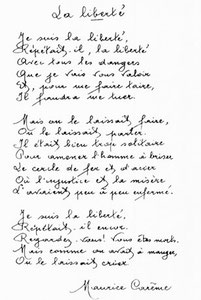 La liberté
Je suis la liberté,
Répétait-il, la liberté
Avec tous les dangers
Que je vais vous valoir
Et, pour me faire taire,
Il faudra me tuer.
Mais on le laissait faire,
On le laissait parler.
Il était bien trop solitaire
Pour amener l'homme à briser
Le cercle de fer et d'acier
Où l'injustice et la misère
L'avaient peu à peu enfermé.
Je suis la liberté,
Répétait-il encore.
Regardez-vous! Vous êtes morts.
Mais comme on avait à manger,
On le laissait crier.
Maurice Carême